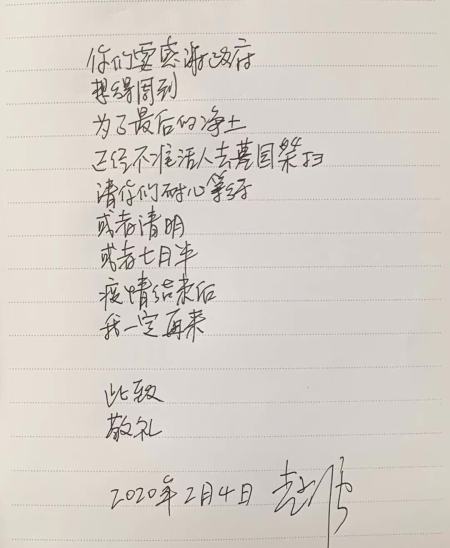 你们要感谢政府
想得周到
为了最后的净土
已经不准活人去墓园祭扫
请你们耐心等待
或者清明
或者七月半
疫情结束后
我一定再来
此致
敬礼
2020年2月4日